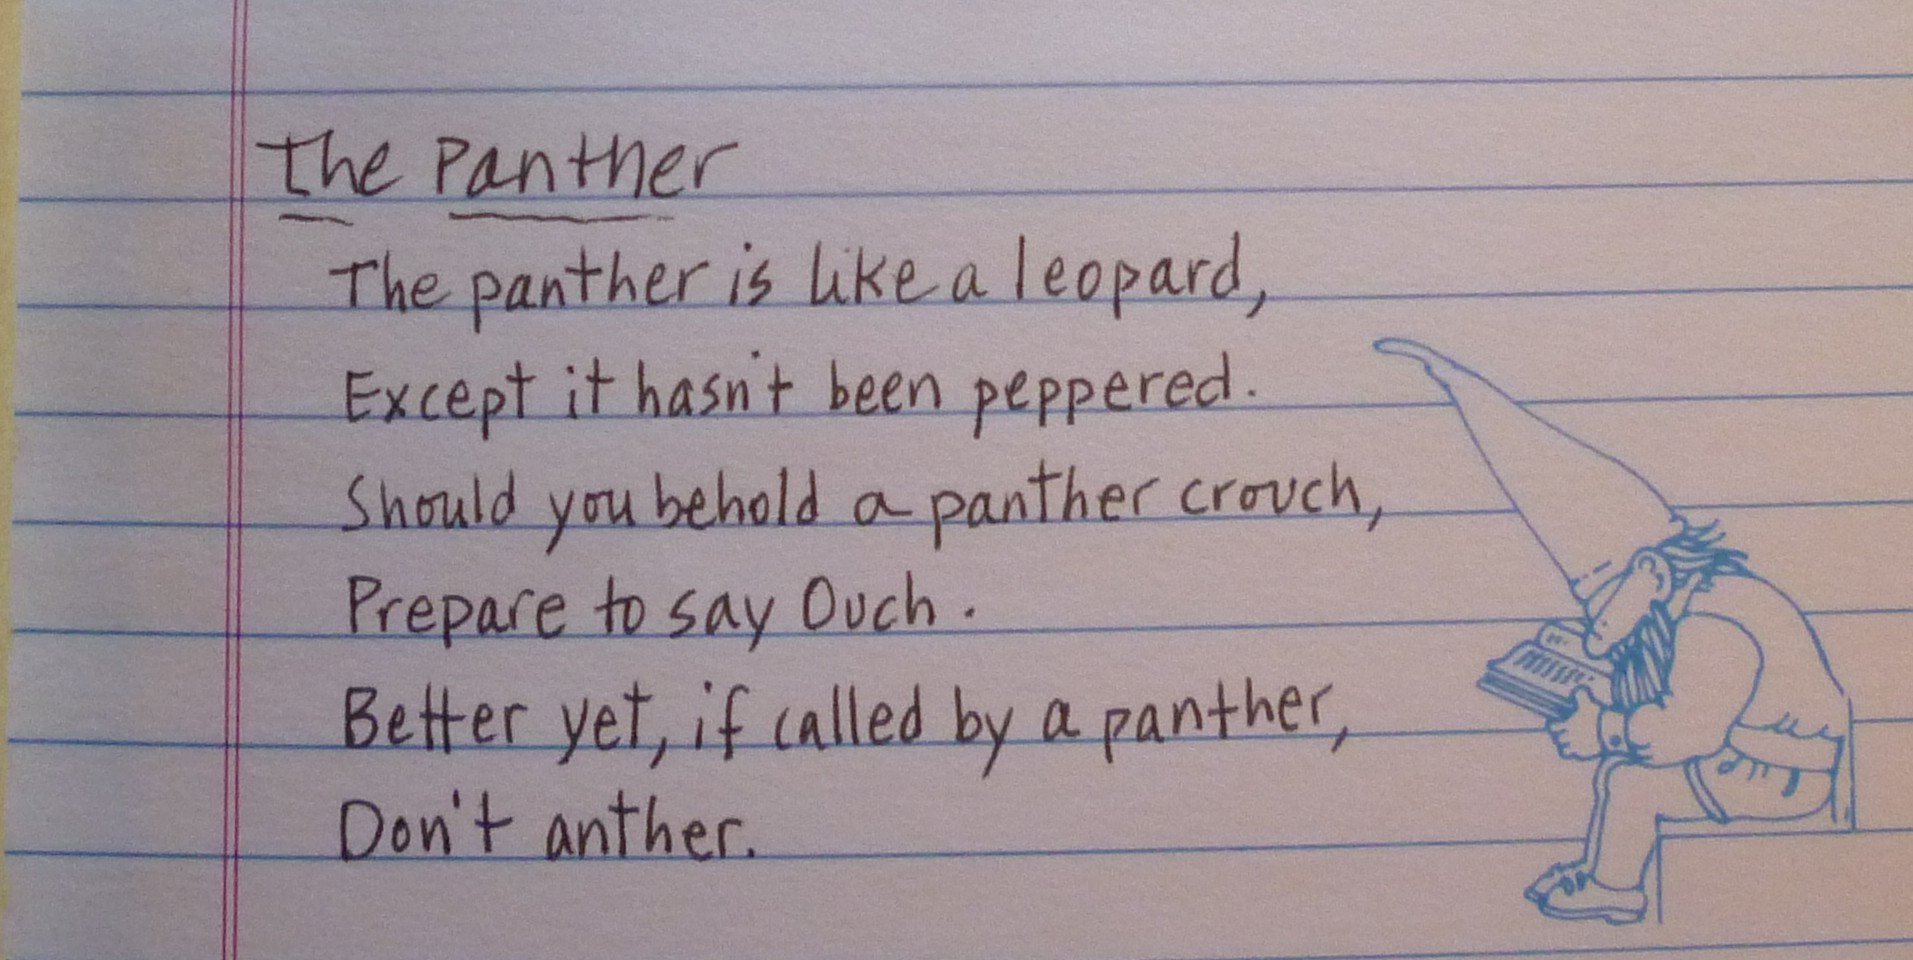 The Panther
The panther is like a leopard,
Except it hasn't been peppered.
Should you behold a panther crouch,
Prepare to say Ouch.
Better yet, if called by a panther,
Don't anther.